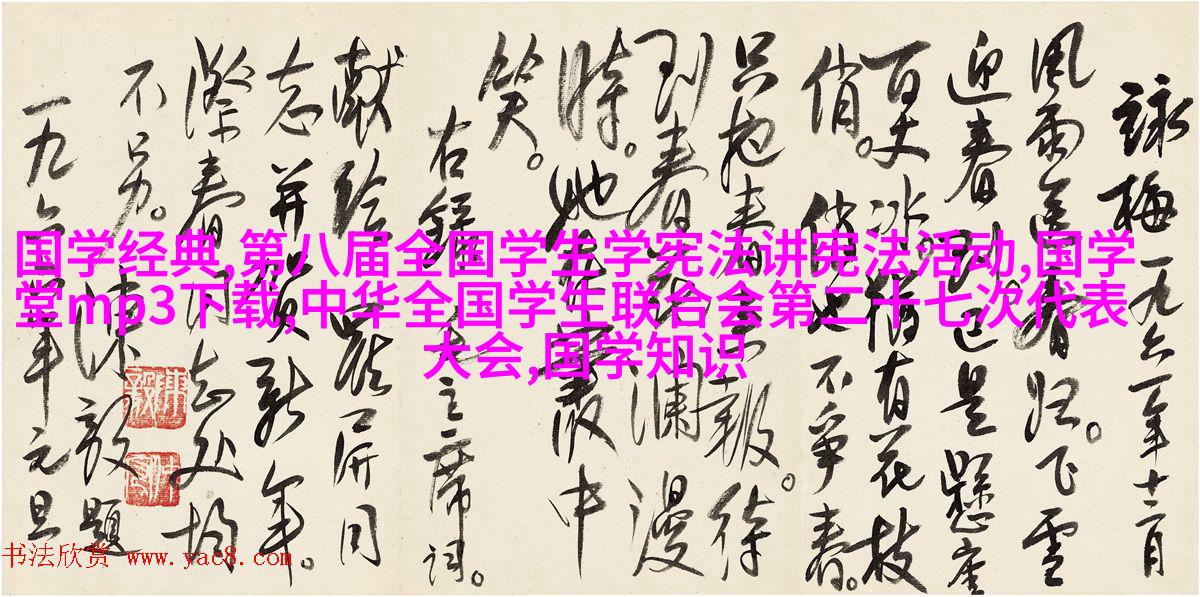 詠梅 一九六一年十二月
風雨送春归。飞雪
迎春到已是懸崖
百丈冰犹有花枝
俏。俏也不争春。
只把春来報。待
到春花瀾漫
時。她在叢中
笑。
右錄毛主席词。
献给 屏同
志并贺新年。
際春同志处均
不另。陳毅題
一九六二年元旦
国学经典,第八届全国学生学宪法讲宪法活动,国学
堂mp3下载,中华全国学生联合会第二十七次代表
大会,国学知识
书法欣赏 www.yac8.com